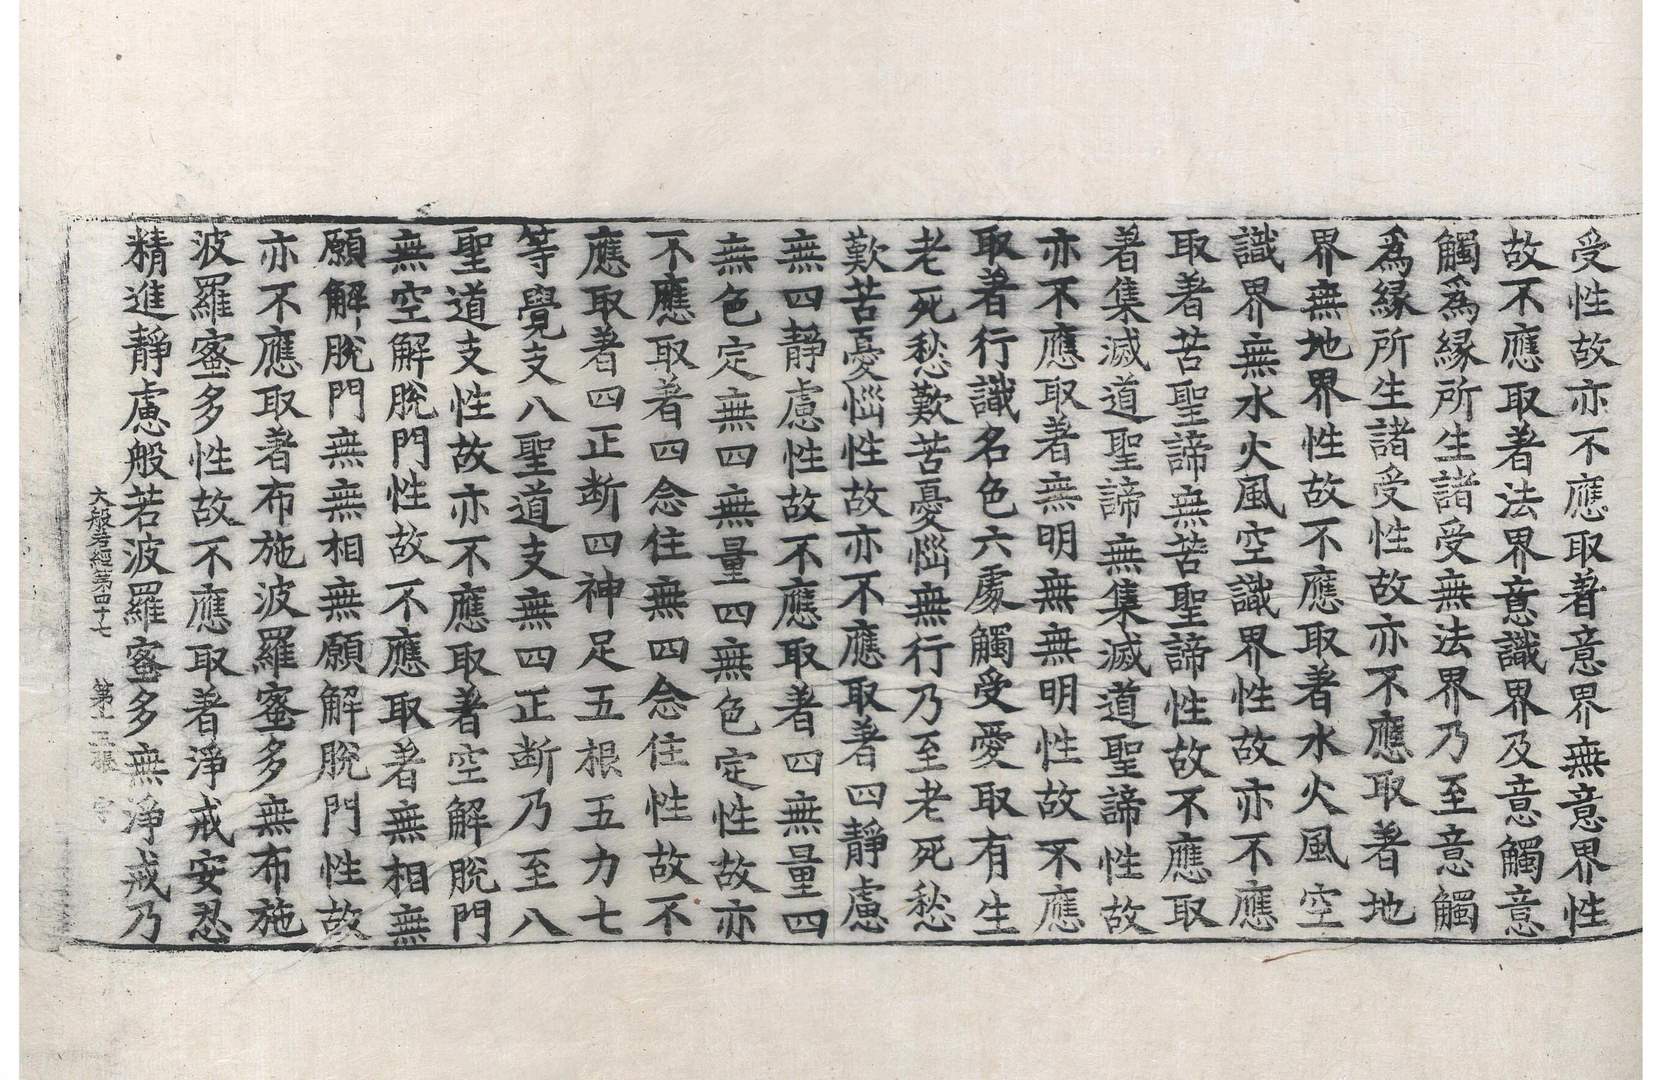 受性故亦不應取著意界無意界性
故不應取著法界意識界及意觸意
觸爲緣所生諸受無法界乃至意觸
爲緣所生諸受性故亦不應取著地
界無地界性故不應取著水火風空
識界無水火風空識界性故亦不應
取著苦聖諦無苦聖諦性故不應取
著集滅道聖諦無集滅道聖諦性故
亦不應取著無明無無明性故不應
取著行識名色六處觸受愛取有生
老死愁歎苦憂惱無行乃至老死愁
歎苦憂惱性故亦不應取著四靜慮
無四靜慮性故不應取著四無量四
無色定無四無量四無色定性故亦
不應取著四念住無四念住性故不
應取著四正断四神足五根五力七
等覺支八聖道支無四正断乃至八
聖道支性故亦不應取著空解脫門
無空解脫門性故不應取著無相無
願解脫門無無相無願解脫門性故
亦不應取著布施波羅蜜多無布施
波羅蜜多性故不應取著淨戒安忍
精進靜慮般若波羅蜜多無淨戒乃
大般若經第四十七 第十三張 字